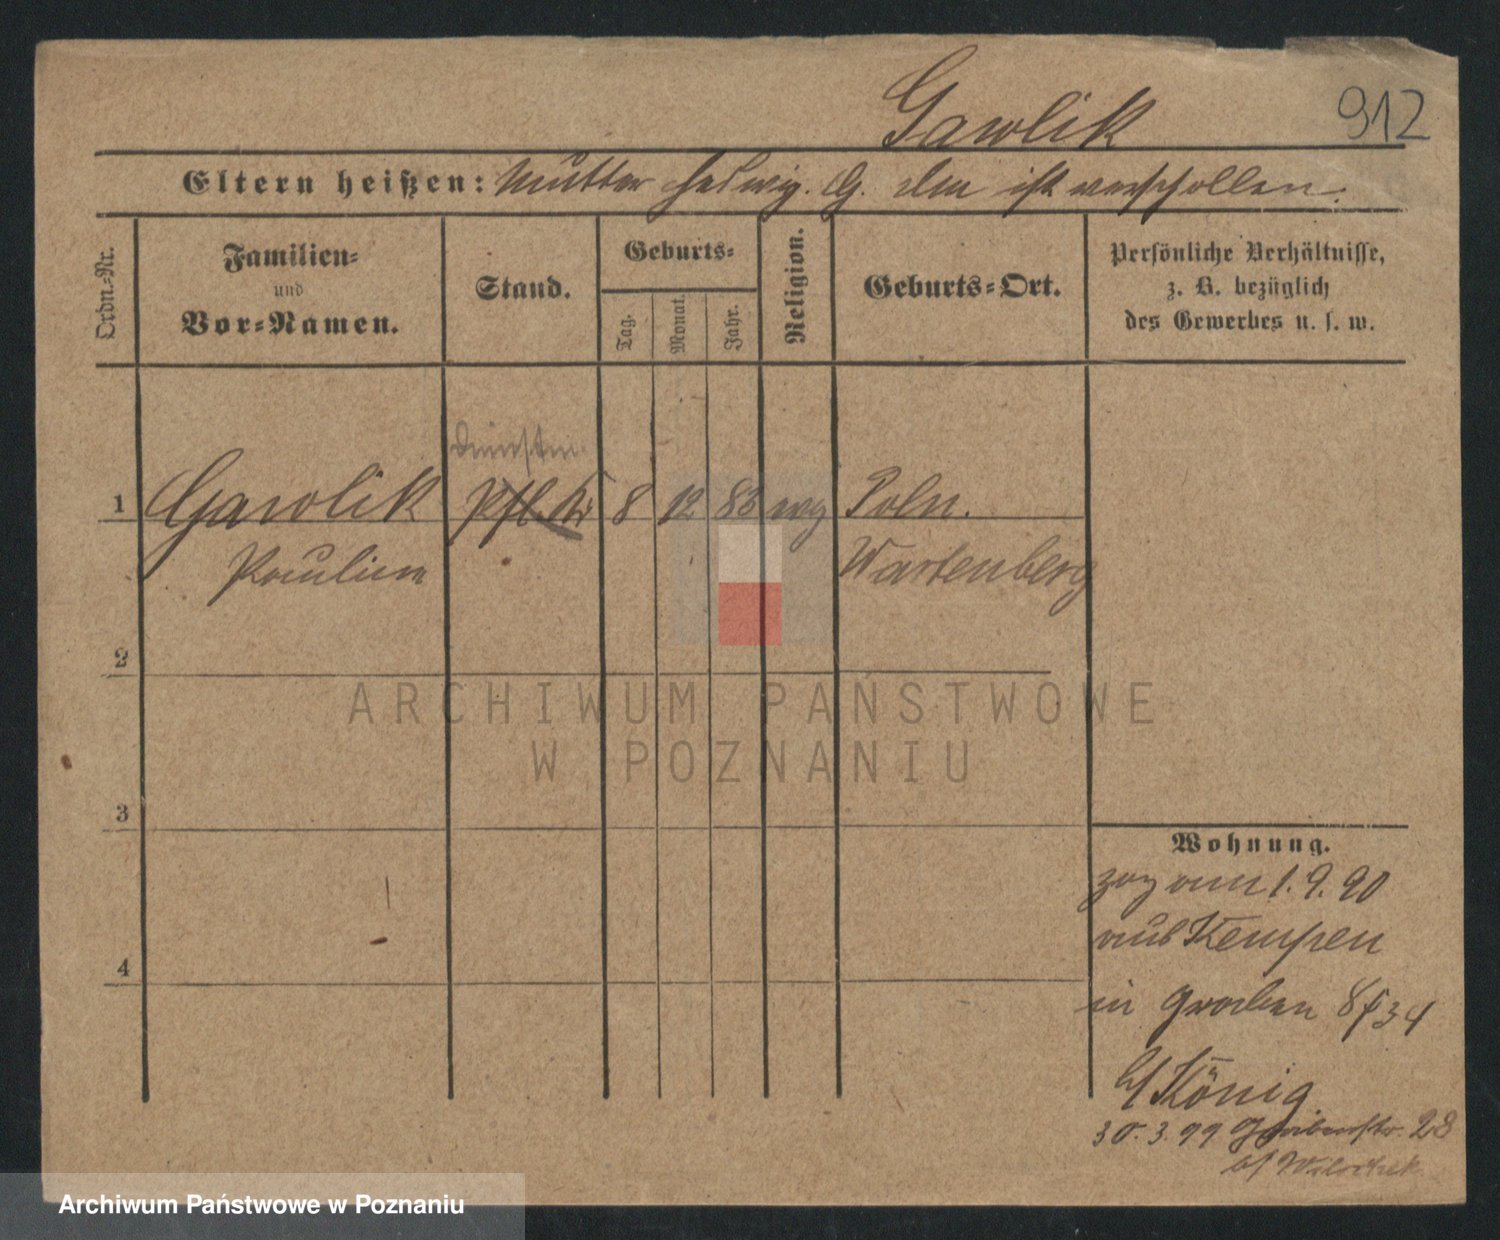 Gawlik
912
Eltern heißen: Mutter Hedwig. G. ist verschollen.
Ordn.=Nr.
Familien=
und
Vor=Namen.
Stand.
Geburts=
Tag.
Monat.
Jahr.
Religion.
Geburts=Ort.
Persönliche Verhältnisse,
z. B. bezüglich
des Gewerbes u. s. w.
1 Gawlik Pfl. 8 12 88 Poln.
Wartenberg
2
3
4
Wohnung.
zog 1. 9. 90
aus Kempen
in Graben 8/34
b/ König
30. 3. 99 Grabenstr. 28
b/
ARCHIWUM PAŃSTWOWE
W POZNANIU
Archiwum Państwowe w Poznaniu